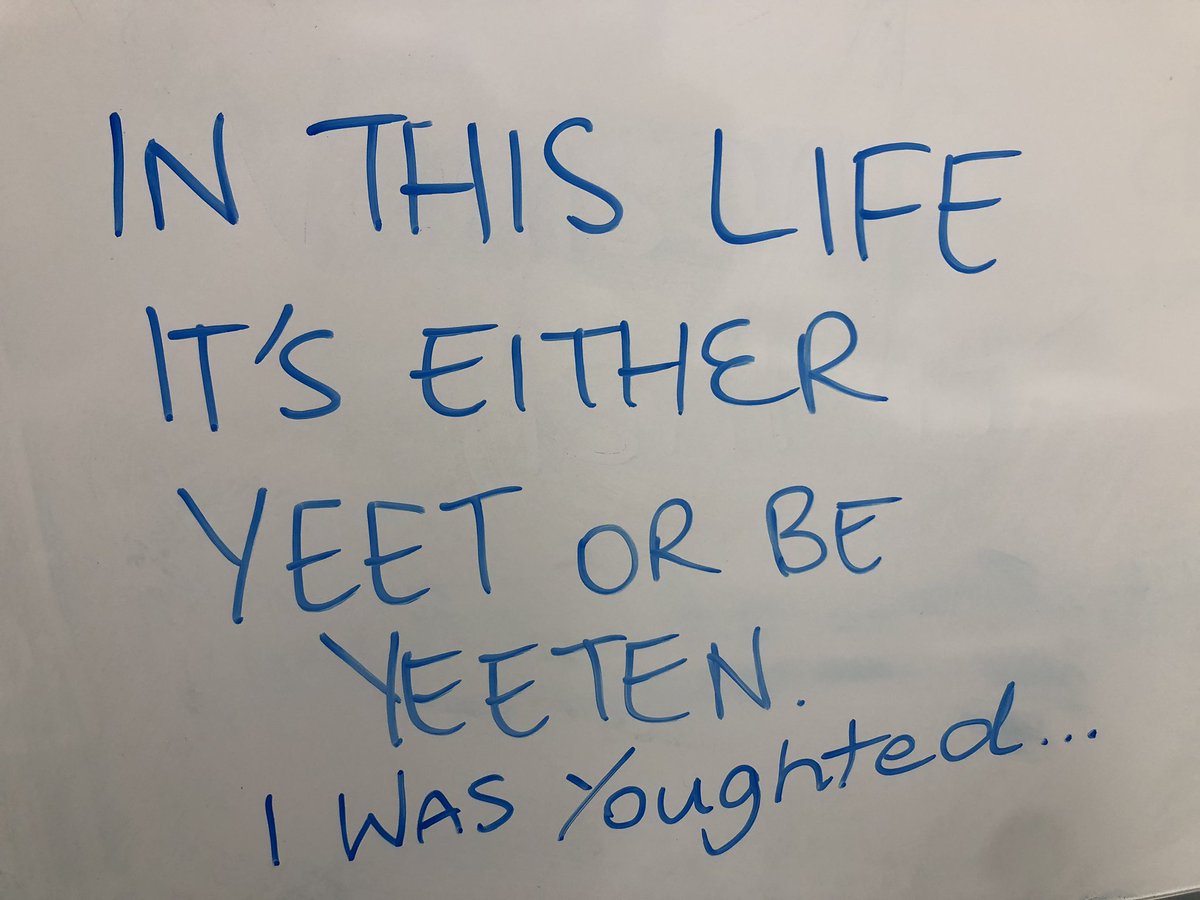 IN THIS LIFE
IT'S EITHER
YEET OR BE
YEETEN.
I WAS Youghted...